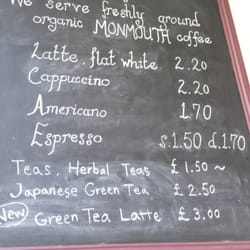 We serve freshly ground
organic MONMOUTH coffee
Latte, flat white 2.20
Cappuccino 2.20
Americano 1.70
Espresso s.1.50 d.1.70
Teas, Herbal Teas £1.50~
Japanese Green Tea £2.50
New Green Tea Latte £3.00